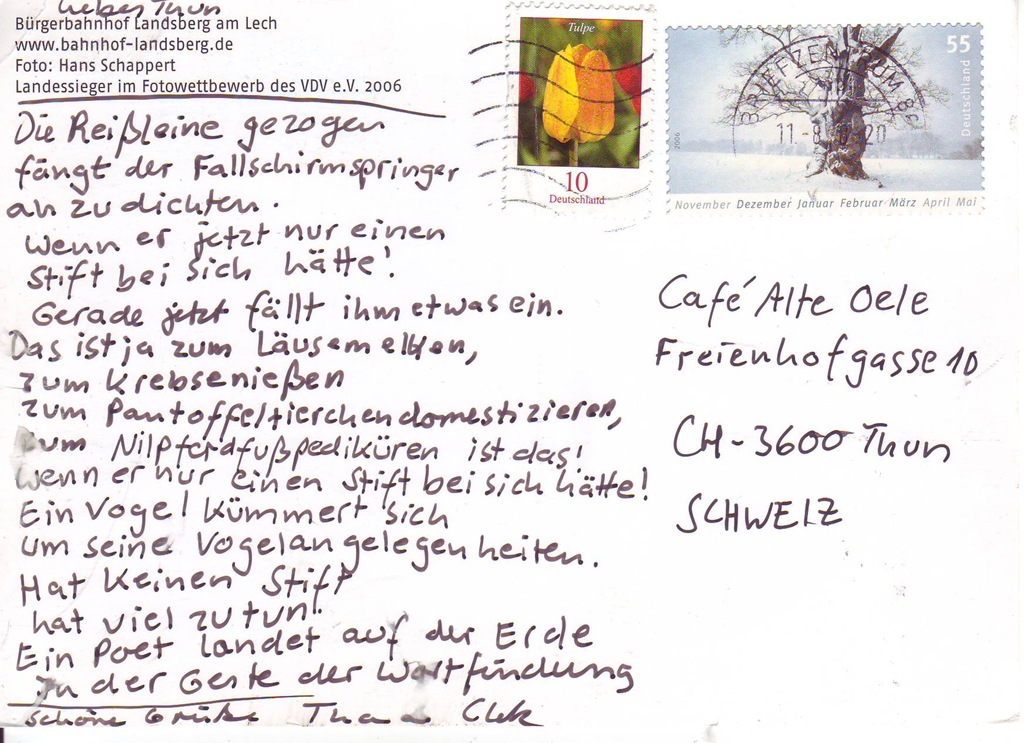 Lieber Thun
Bürgerbahnhof Landsberg am Lech
www.bahnhof-landsberg.de
Foto: Hans Schappert
Landessieger im Fotowettbewerb des VDV e.V. 2006
Die Reißleine gezogen
fängt der Fallschirmspringer
an zu dichten.
Wenn er jetzt nur einen
Stift bei sich hätte!
Gerade jetzt fällt ihm etwas ein.
Das ist ja zum Läusemelken,
zum Krebsenießen
zum Pantoffeltierchendomestizieren,
zum Nilpferdfußpediküren ist das!
Wenn er nur einen Stift bei sich hätte!
Ein Vogel kümmert sich
um seine Vogelangelegenheiten.
Hat keinen Stift
hat viel zu tun.
Ein Poet landet auf der Erde
In der Geste der Wortfindung
schöne Grüße
Tulpe
10
Deutschland
55
Deutschland
2006
November Dezember Januar Februar März April Mai
BRIEFZENTRUM 86
Café Alte Oele
Freienhofgasse 10
CH-3600 Thun
SCHWEIZ